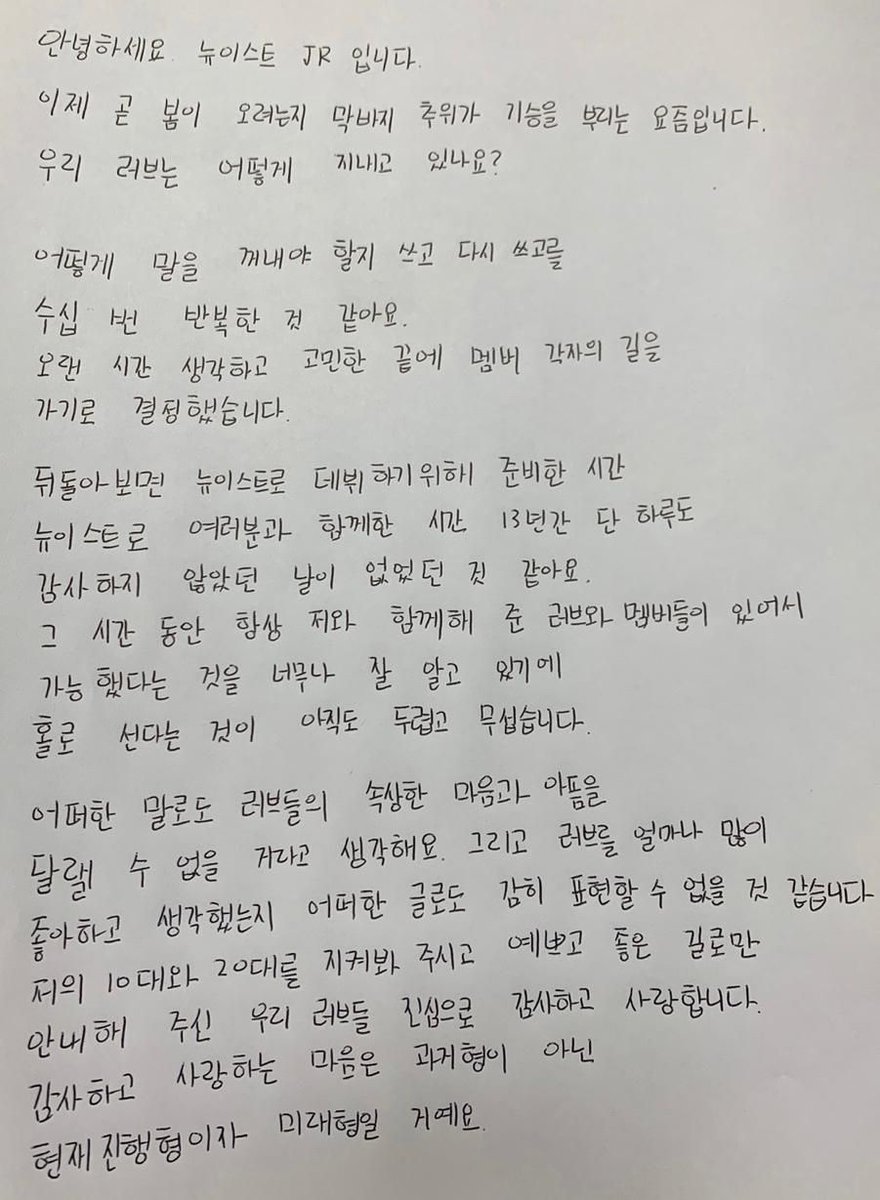 안녕하세요. 뉴이스트 JR 입니다.
이제 곧 봄이 오려는지 막바지 추위가 기승을 부리는 요즘입니다.
우리 러브는 어떻게 지내고 있나요?
어떻게 말을 꺼내야 할지 쓰고 다시 쓰고를
수십 번 반복한 것 같아요.
오랜 시간 생각하고 고민한 끝에 멤버 각자의 길을
가기로 결정했습니다.
뒤돌아보면 뉴이스트로 데뷔하기위해 준비한 시간
뉴이스트로 여러분과 함께한 시간 13년간 단 하루도
감사하지 않았던 날이 없었던 것 같아요.
그 시간 동안 항상 저와 함께해 준 러브와 멤버들이 있어서
가능했다는 것을 너무나 잘 알고 있기에
홀로 선다는 것이 아직도 두렵고 무섭습니다.
어떠한 말로도 러브들의 속상한 마음과 아픔을
달랠 수 없을 거라고 생각해요. 그리고 러브를 얼마나 많이
좋아하고 생각했는지 어떠한 글로도 감히 표현할 수 없을 것 같습니다
저의 10대와 20대를 지켜봐 주시고 예쁘고 좋은 길로만
안내해 주신 우리 러브들 진심으로 감사하고 사랑합니다.
감사하고 사랑하는 마음은 과거형이 아닌
현재진행형이자 미래형일 거예요.